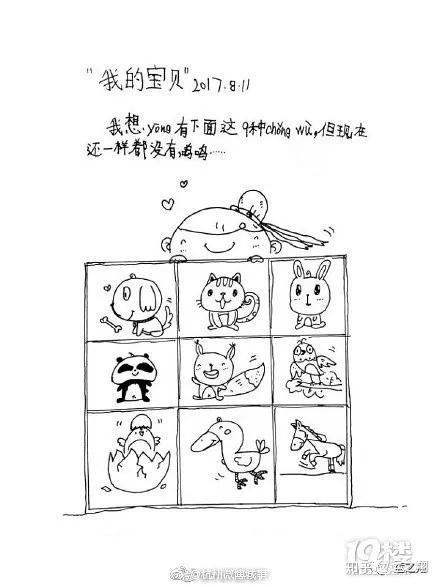 "我的宝贝" 2017.8.11
我想yōng有下面这9种chǒng wù,但现在
还一样都没有,呜呜……
19楼
知乎